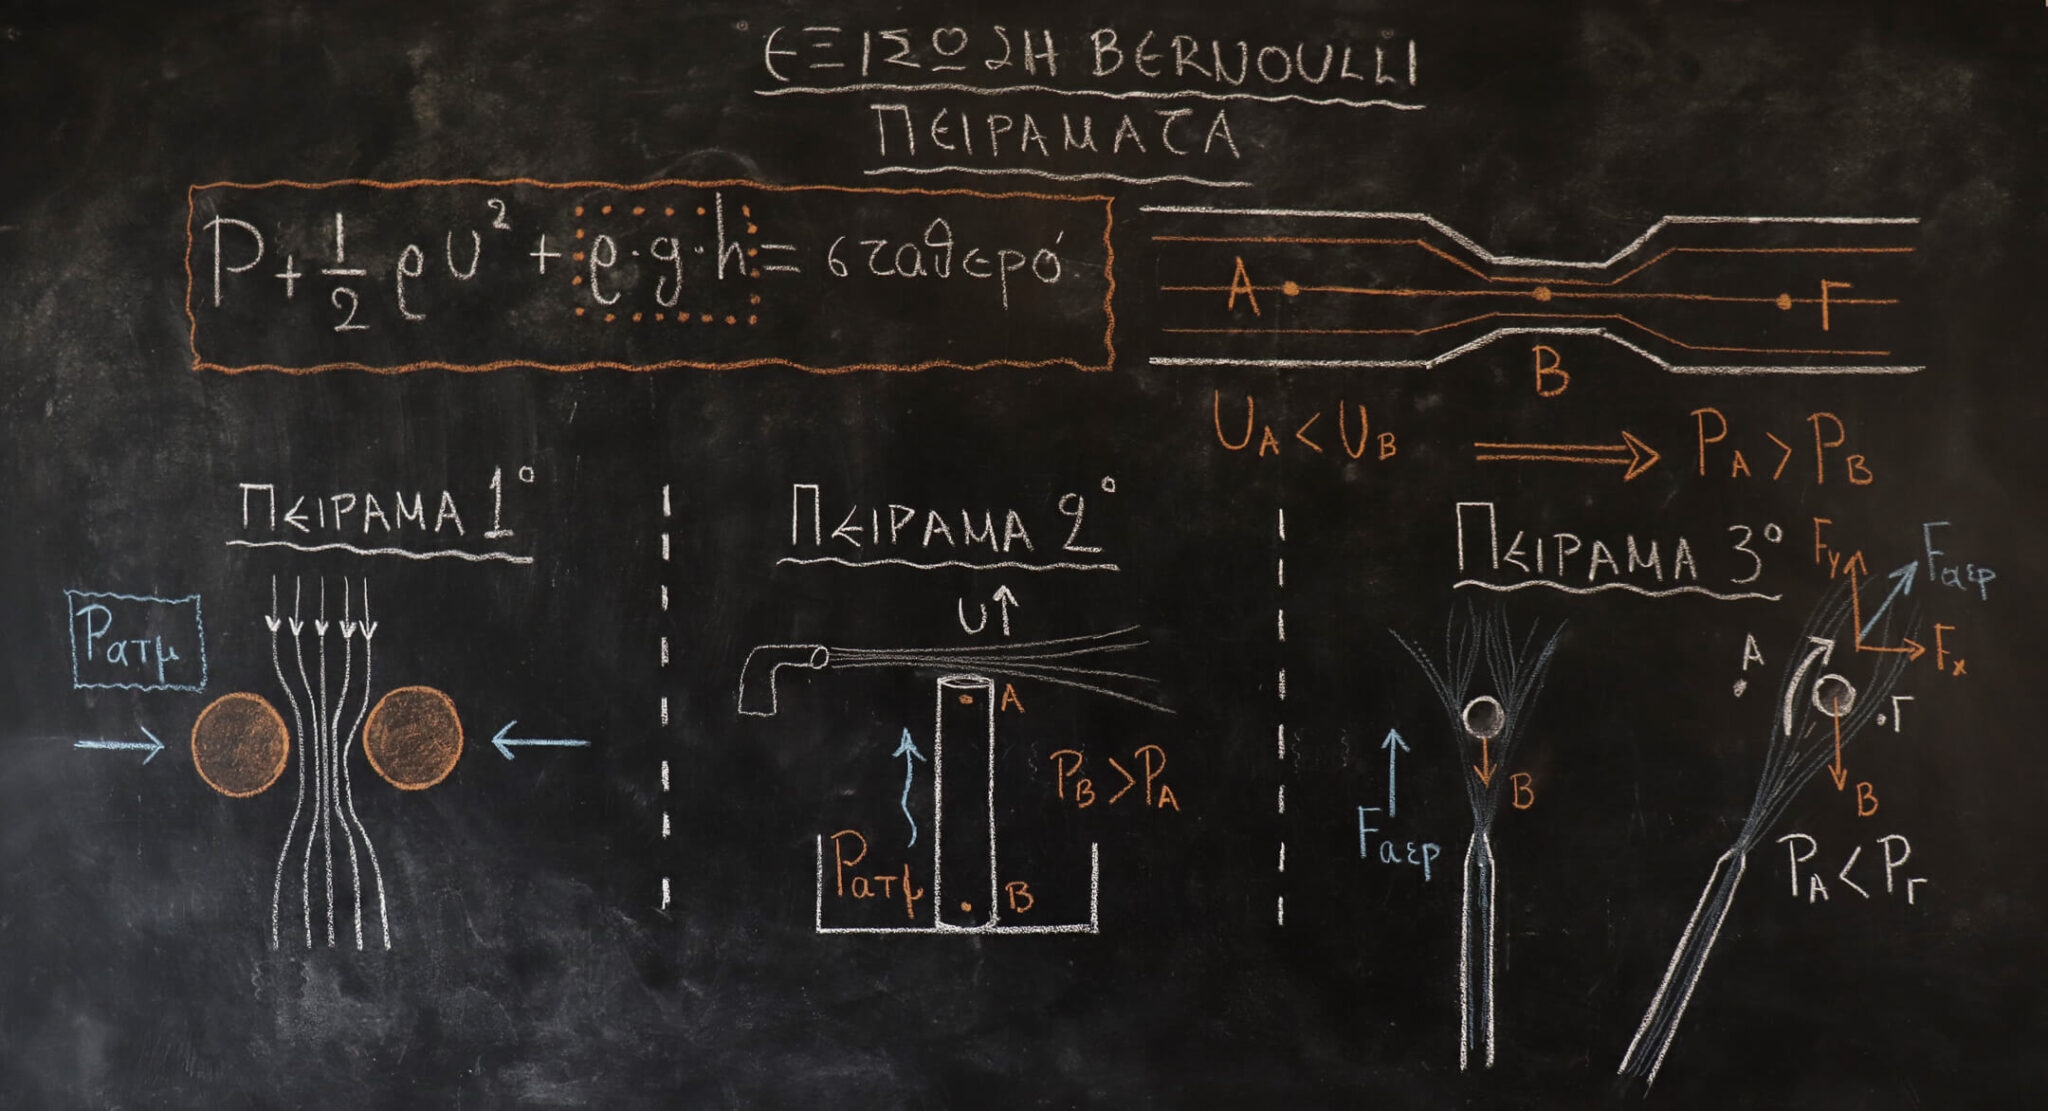 ΕΞΙΣΩΣΗ BERNOULLI
ΠΕΙΡΑΜΑΤΑ
P + 1/2 ρ υ² + ρ·g·h = σταθερό
Α Β Γ
υ_Α < υ_Β ⟹ P_Α > P_Β
ΠΕΙΡΑΜΑ 1°
Pατμ
ΠΕΙΡΑΜΑ 2°
υ↑
Α
P_Β > P_Α
Pατμ
Β
ΠΕΙΡΑΜΑ 3°
Fy
Fαερ
Fx
Α
Γ
Β
Β
Fαερ
P_Α < P_Γ